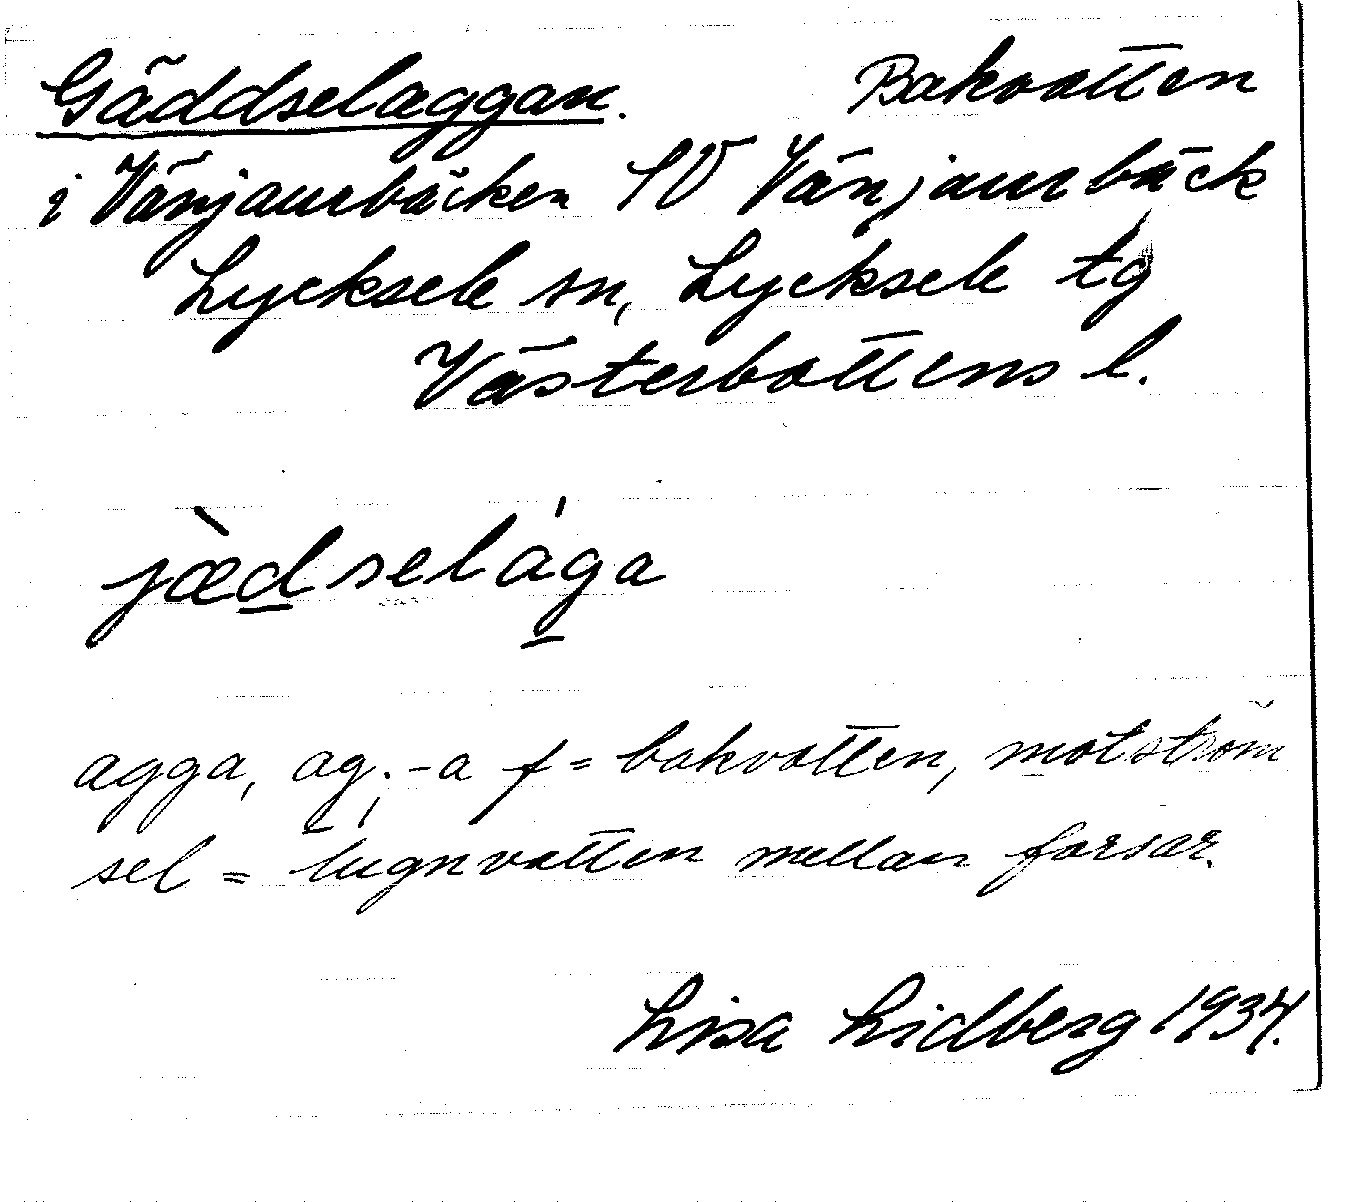 Gäddselaggan. Bakvatten
i Vänjaurbäcken SV Vänjaurbäck
Lycksele sn, Lycksele tg
Västerbottens l.
jæ̀dselága
agga, ag; -a f = bakvatten, motström
sel = lugnvatten mellan forsar.
Lisa Lidberg 1934.